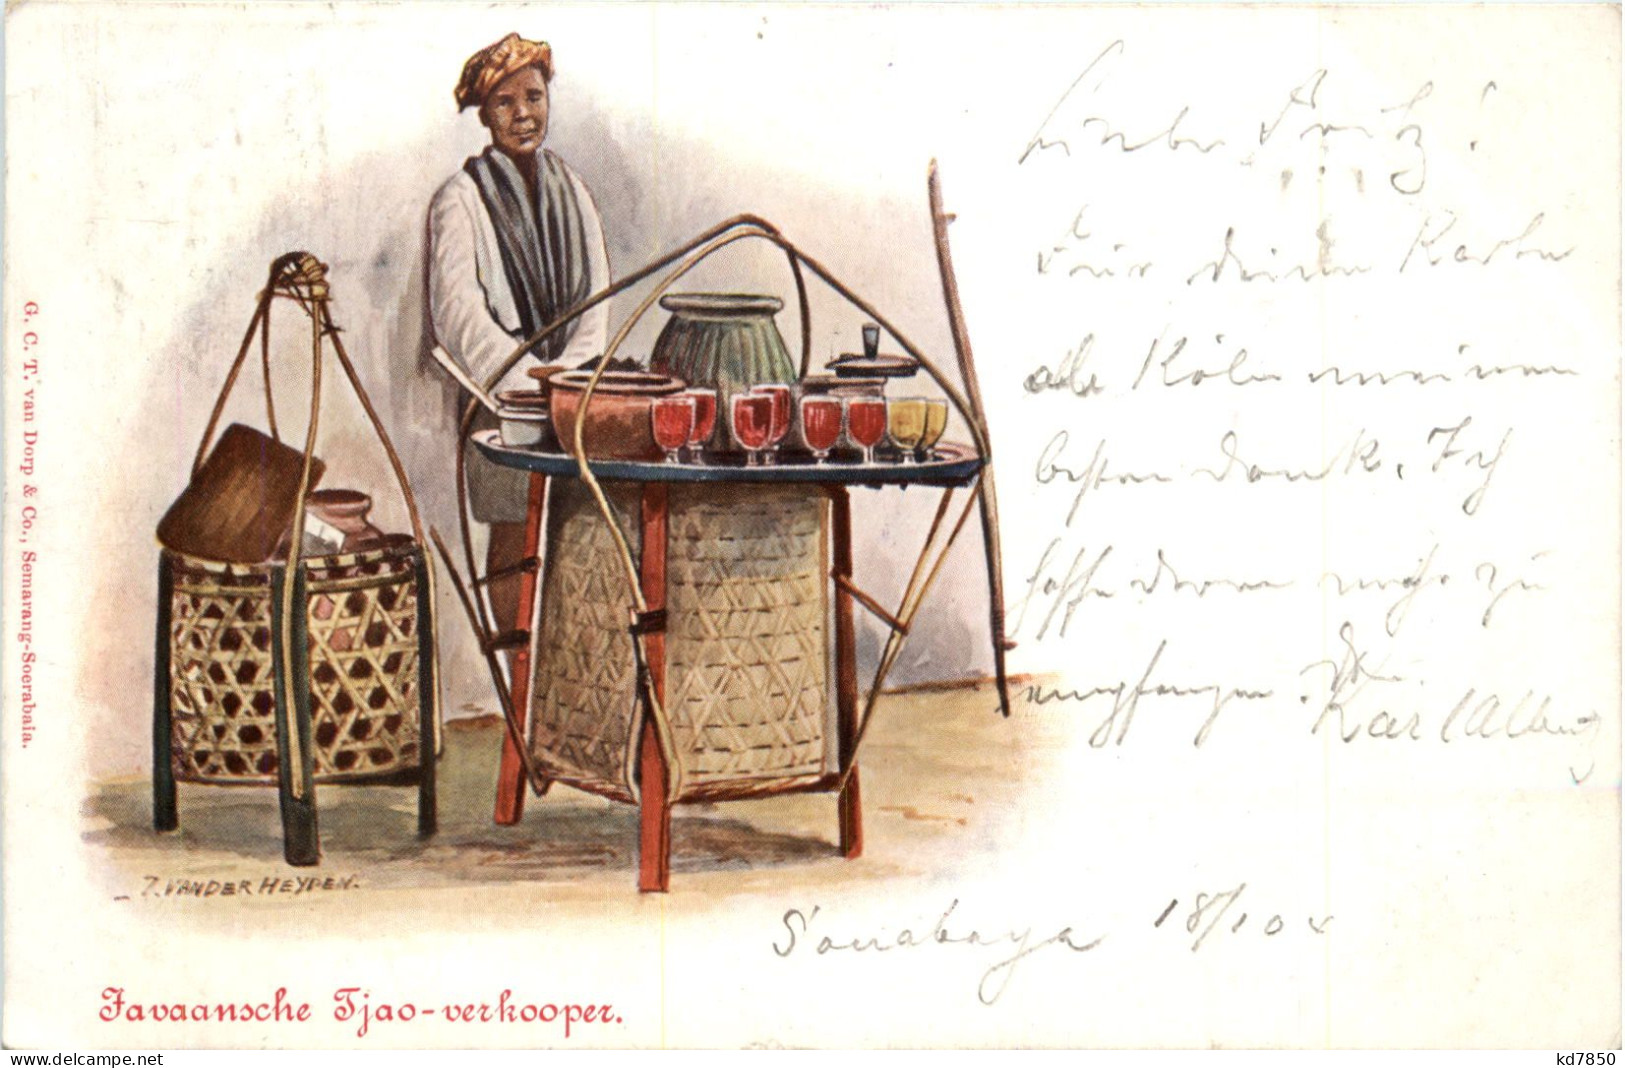 Lieber Fritz!
Für deine Karte
Köln meinen
besten Dank. Ich
hoffe deren mehr zu
empfangen.
Karl Albert
Soerabaya 18/10 04
J. VAN DER HEYDEN.
Javaansche Tjao-verkooper.
G. C. T. van Dorp & Co., Semarang-Soerabaia.
www.delcampe.net
kd7850